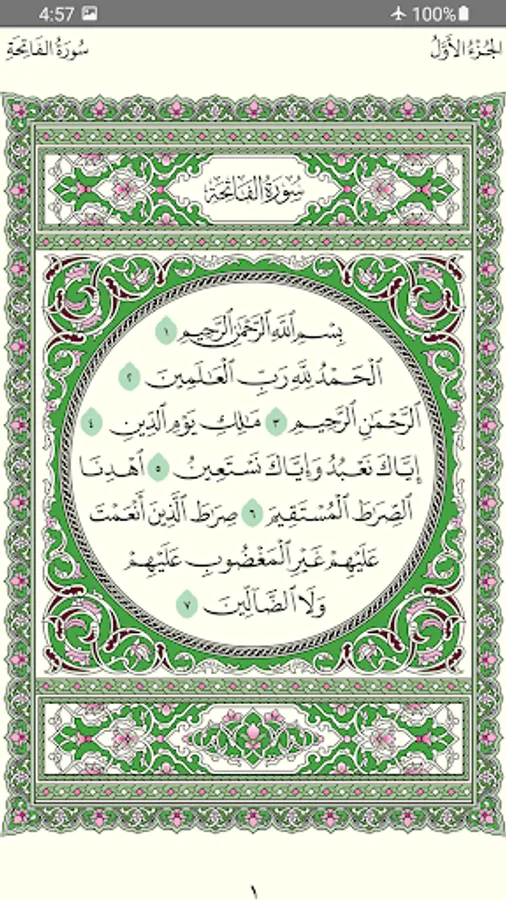 4:57 100%
الجُزْءُ الأَوَّلُ سُورَةُ الفَاتِحَةِ
سُورَةُ الفَاتِحَةِ
بِسْمِ ٱللَّهِ ٱلرَّحْمَٰنِ ٱلرَّحِيمِ ١
ٱلْحَمْدُ لِلَّهِ رَبِّ ٱلْعَٰلَمِينَ ٢
ٱلرَّحْمَٰنِ ٱلرَّحِيمِ ٣ مَٰلِكِ يَوْمِ ٱلدِّينِ ٤
إِيَّاكَ نَعْبُدُ وَإِيَّاكَ نَسْتَعِينُ ٥ ٱهْدِنَا
ٱلصِّرَٰطَ ٱلْمُسْتَقِيمَ ٦ صِرَٰطَ ٱلَّذِينَ أَنْعَمْتَ
عَلَيْهِمْ غَيْرِ ٱلْمَغْضُوبِ عَلَيْهِمْ
وَلَا ٱلضَّآلِّينَ ٧
١